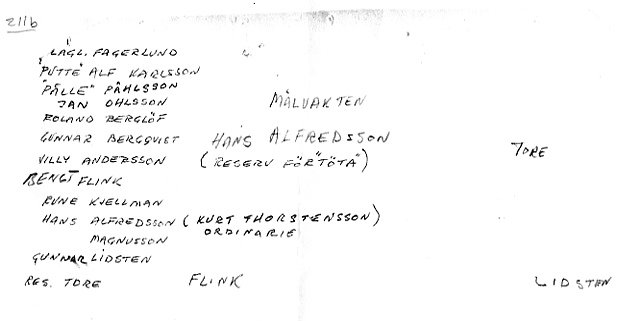 211b
LAGL. FAGERLUND
"PUTTE" ALF KARLSSON
"PÅLLE" PÅHLSSON
JAN OHLSSON MÅLVAKTEN
ROLAND BERGLÖF
GUNNAR BERGQVIST HANS ALFREDSSON
VILLY ANDERSSON (RESERV FÖR "TÖTA") TORE
BENGT FLINK
RUNE KJELLMAN
HANS ALFREDSSON (KURT THORSTENSSON)
ORDINARIE
MAGNUSSON
GUNNAR LIDSTEN
RES. TORE FLINK LIDSTEN